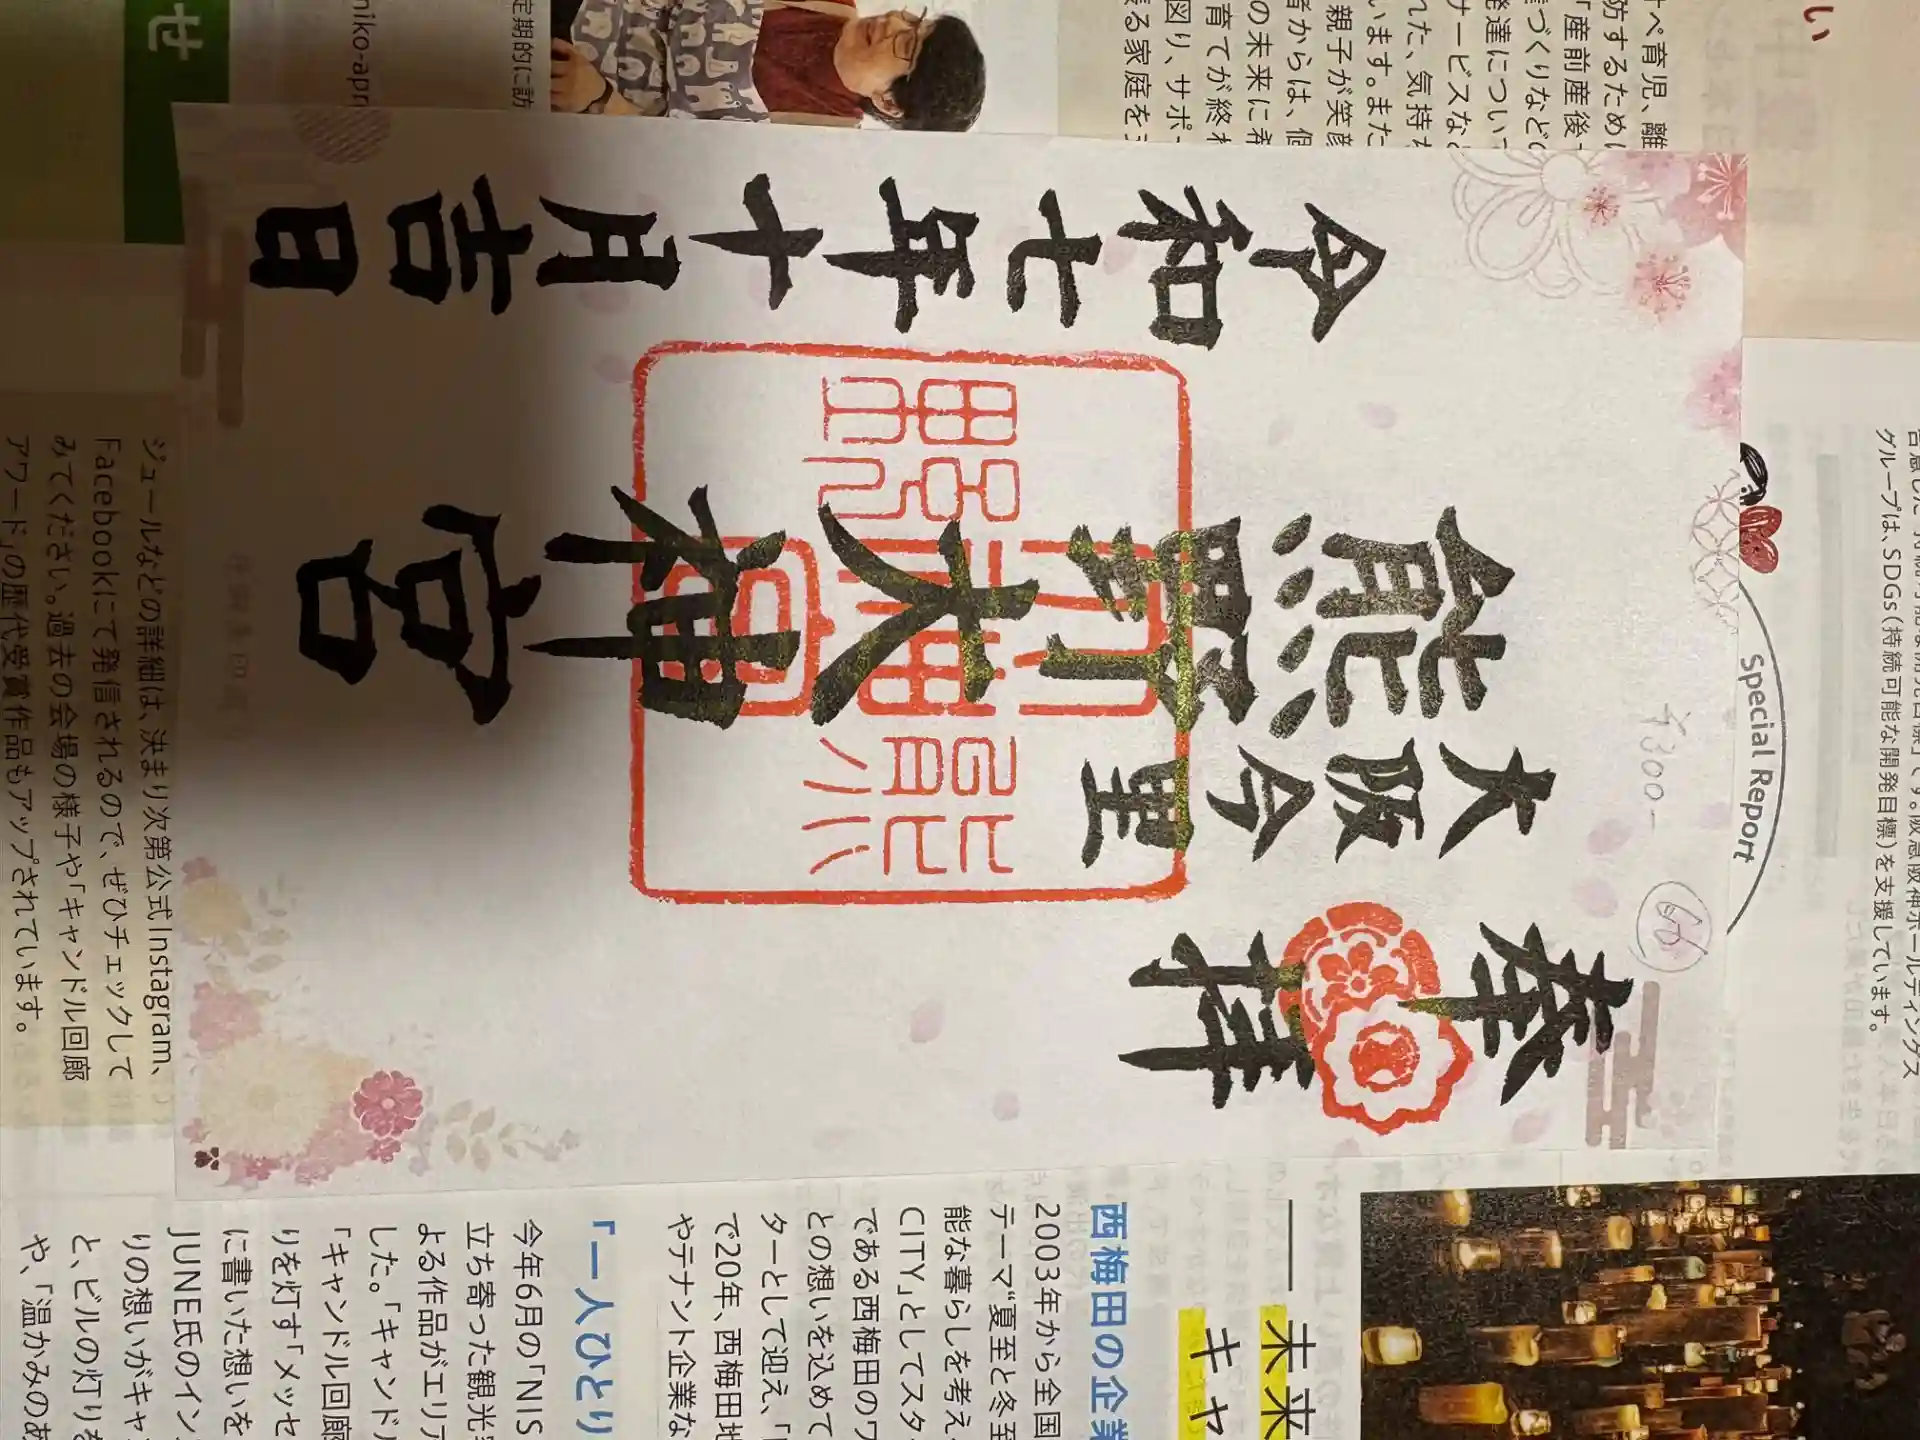 奉拝
大阪今里
熊野大神宮
令和七年十月吉日
熊野大神宮
¥300-
66
Special Report
い
ペ育児、離
防するため
「産前産後
づくりなど
発達につい
サービスな
れた、気持
います。また
親子が笑顔
者からは、個
の未来に希
育てが終わ
図り、サポー
る家庭を
定期的に訪
せ
グループは、SDGs(持続可能な開発目標)を支援しています。
ジュールなどの詳細は、決まり次第公式Instagram、
Facebookにて発信されるので、ぜひチェックして
みてください。過去の会場の様子や「キャンドル回廊
アワード」の歴代受賞作品もアップされています。
未来
キャ
西梅田の企業
2003年から全国
テーマ“夏至と冬至
能な暮らしを考え
CITY」としてスター
である西梅田のワ
との想いを込めて
ターとして迎え、「
で20年、西梅田地
やテナント企業な
「一人ひとり
今年6月の「NIS
立ち寄った観光
よる作品がエリア
した。「キャンドル
「キャンドル回廊
りを灯す「メッセ
に書いた想いを
JUNE氏のイン
りの想いがキャン
と、ビルの灯りを
や、「温かみのあ